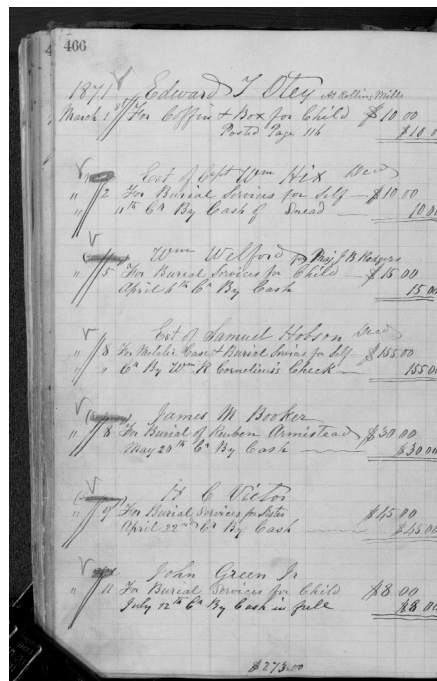 466
1871 Edward T Otey At Rolling Mills
March 1st For Coffin & Box for Child $10.00
Posted Page 116 $10.0
Est of Capt Wm Hix Decd
" 2 For Burial Services for Self — $10.00
" " 11th Cr By Cash of Snead — 10.00
Wm Welford by Maj J B Rodgers
" 5 For Burial Services for Child — $15.00
April 4th Cr By Cash 15.00
Est of Samuel Hobson Decd
" 8 For Metalic Case & Burial Services for Self $155.00
" " Cr By Wm R Cornelius's Check — 155.00
James M Booker
" 8 For Burial of Reuben Armistead $30.00
May 20th Cr By Cash — $30.00
H C Victor
" 9 For Burial Services for Sister $45.00
April 22nd Cr By Cash — $45.00
John Green Jr
" 11 For Burial Services for Child $8.00
July 12th Cr By Cash in full $8.00
$273.00